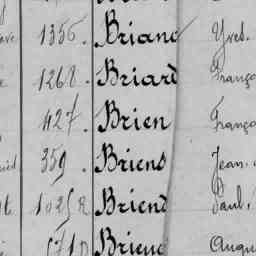 1356. Briand Yves.
1268. Briard Franço
427. Brien Franço
359. Briens Jean.
1025 R Briend Paul.
571 R Briend Augu